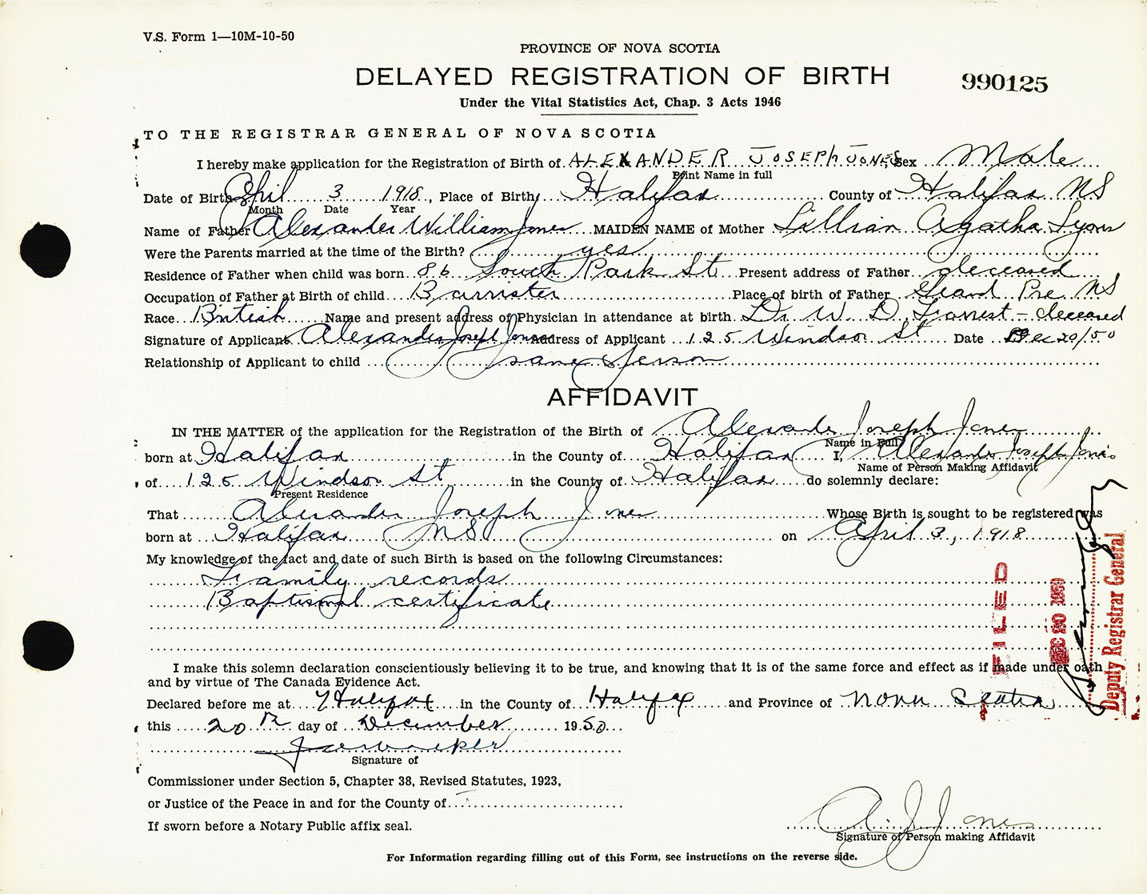 V.S. Form 1—10M-10-50
PROVINCE OF NOVA SCOTIA
DELAYED REGISTRATION OF BIRTH
990125
Under the Vital Statistics Act, Chap. 3 Acts 1946
TO THE REGISTRAR GENERAL OF NOVA SCOTIA
I hereby make application for the Registration of Birth of ALEXANDER JOSEPH JONES Sex Male
Print Name in full
Date of Birth April 3 1918, Place of Birth Halifax County of Halifax NS
Month Date Year
Name of Father Alexander William Jones MAIDEN NAME of Mother Lillian Agatha Lyons
Were the Parents married at the time of the Birth? yes
Residence of Father when child was born 86 South Park St Present address of Father deceased
Occupation of Father at Birth of child Barrister Place of birth of Father Grand Pre NS
Race British Name and present address of Physician in attendance at birth. Dr. W. D. Forrest - deceased
Signature of Applicant Alexander Joseph Jones Address of Applicant 125 Windsor St Date Dec 20/50
Relationship of Applicant to child same person
AFFIDAVIT
IN THE MATTER of the application for the Registration of the Birth of Alexander Joseph Jones
Name in Full
born at Halifax in the County of Halifax I, Alexander Joseph Jones
Name of Person Making Affidavit
of 125 Windsor St in the County of Halifax do solemnly declare:
Present Residence
That Alexander Joseph Jones Whose Birth is sought to be registered was
born at Halifax NS on April 3, 1918
My knowledge of the fact and date of such Birth is based on the following Circumstances:
Family records
Baptismal certificate
FILED
DEC 20 1950
Deputy Registrar General
I make this solemn declaration conscientiously believing it to be true, and knowing that it is of the same force and effect as if made under oath
and by virtue of The Canada Evidence Act.
Declared before me at Halifax in the County of Halifax and Province of Nova Scotia
this 20th day of December 1950
Signature of
Commissioner under Section 5, Chapter 38, Revised Statutes, 1923,
or Justice of the Peace in and for the County of
If sworn before a Notary Public affix seal.
A. J. Jones
Signature of Person making Affidavit
For Information regarding filling out of this Form, see instructions on the reverse side.